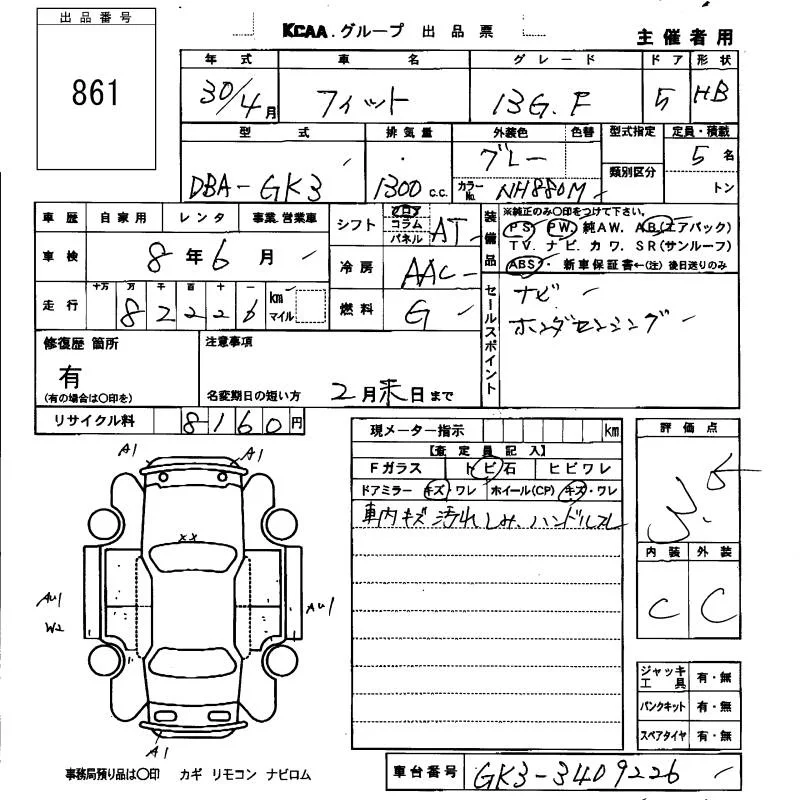 出品番号
861
KCAA.グループ 出品票
主催者用
年式 車名 グレード ドア 形状
30/4月 フィット 13G.F 5 HB
型式 排気量 外装色 色替 型式指定 定員・積載
類別区分
DBA-GK3 1300 c.c. グレー カラーNo. NH880M 5名
トン
車歴 自家用 レンタ 事業.営業車
車検 8年6月
走行 十万 万 千 百 十 一
8 2 2 2 6 km マイル
シフト フロア コラム パネル AT
冷房 AAC
燃料 G
装備品
※純正のみ○印をつけて下さい。
PS PW. 純AW. AB(エアバック)
TV. ナビ. カワ. SR(サンルーフ)
ABS・ 新車保証書←(注)後日送りのみ
セールスポイント
ナビ
ホンダセンシング
修復歴 箇所
有
(有の場合は○印を)
注意事項
名変期日の短い方 2月末日まで
リサイクル料 8160円
現メーター指示 km
【査定員記入】
Fガラス トビ石 ヒビワレ
ドアミラー キズ・ワレ ホイール(CP) キズ・ワレ
車内キズ 汚れ しみ、ハンドルスレ
評価点
3.
内装 外装
C C
A1 A1
XX
AU1
W2
AU1
A1
ジャッキ工具 有・無
パンクキット 有・無
スペアタイヤ 有・無
事務局預り品は○印 カギ リモコン ナビロム
車台番号 GK3-3409226